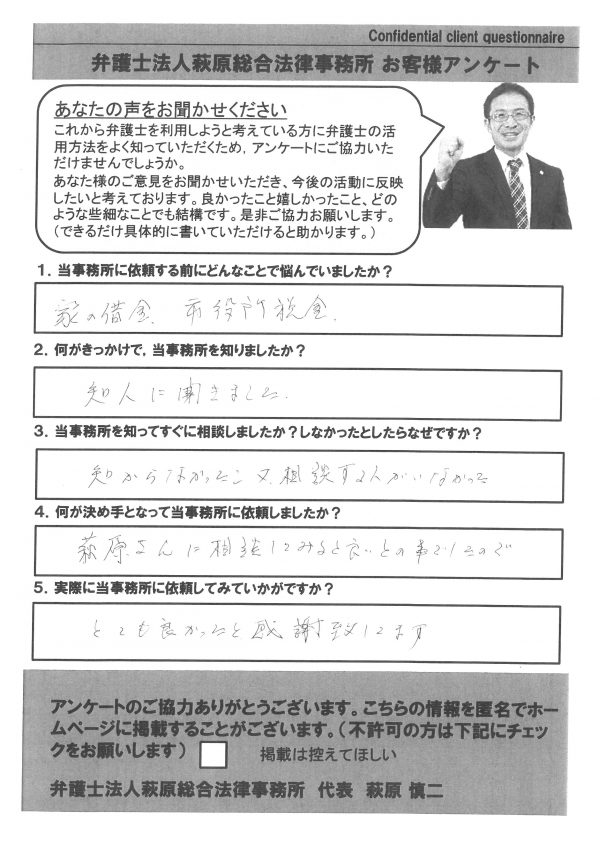 Confidential client questionnaire
弁護士法人萩原総合法律事務所 お客様アンケート
あなたの声をお聞かせください
これから弁護士を利用しようと考えている方に弁護士の活
用方法をよく知っていただくため，アンケートにご協力いた
だけませんでしょうか。
あなた様のご意見をお聞かせいただき、今後の活動に反映
したいと考えております。良かったこと嬉しかったこと、どの
ような些細なことでも結構です。是非ご協力お願いします。
（できるだけ具体的に書いていただけると助かります。）
1．当事務所に依頼する前にどんなことで悩んでいましたか？
家の借金、市役所税金、
2．何がきっかけで，当事務所を知りましたか？
知人に聞きました。
3．当事務所を知ってすぐに相談しましたか？しなかったとしたらなぜですか？
相談する人がいなかった
4．何が決め手となって当事務所に依頼しましたか？
萩原さんに相談してみると良いとの事でしたので
5．実際に当事務所に依頼してみていかがですか？
とても良かったと感謝致してます
アンケートのご協力ありがとうございます。こちらの情報を匿名でホー
ムページに掲載することがございます。（不許可の方は下記にチェッ
クをお願いします）
掲載は控えてほしい
弁護士法人萩原総合法律事務所 代表 萩原 慎二